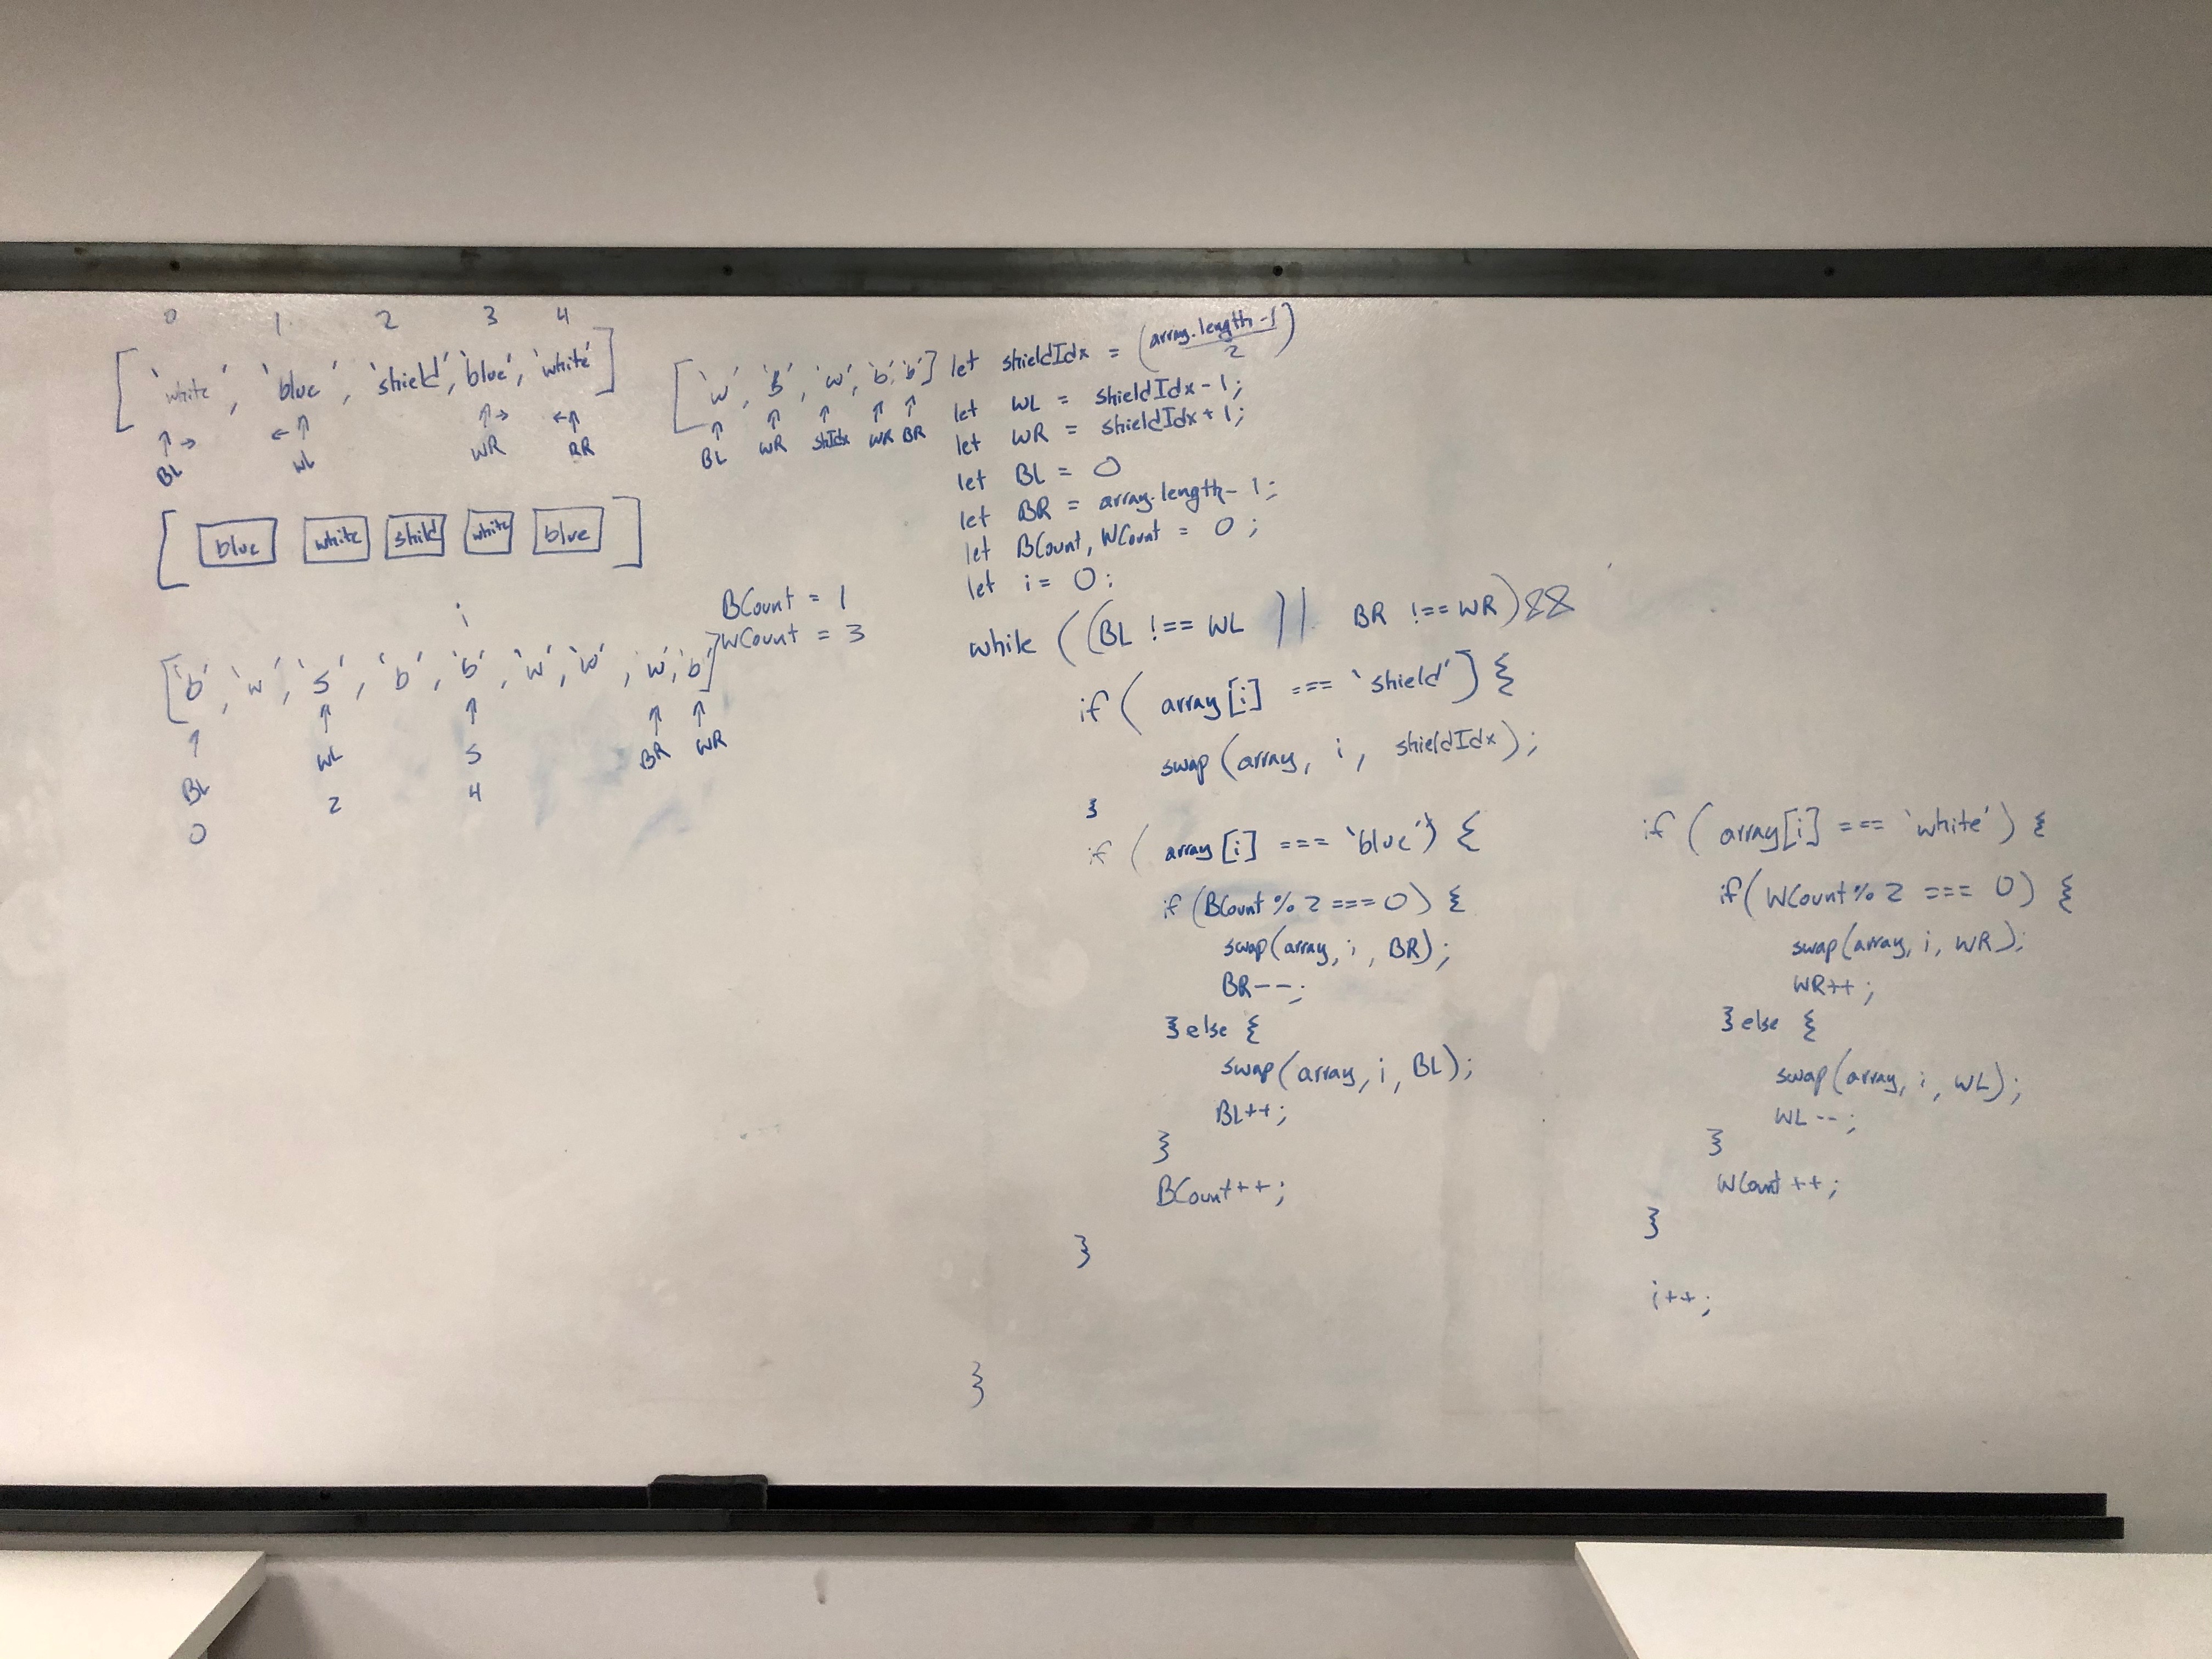 0 1 2 3 4
['white', 'blue', 'shield', 'blue', 'white']
↑→ ←↑ ↑→ ←↑
BL WL WR BR
[blue white shild white blue]
BCount = 1
WCount = 3
i
['b', 'w', 'S', 'b', 'b', 'w', 'w', 'w', 'b']
↑ ↑ ↑ ↑ ↑
BL WL S BR WR
0 2 4
['w', 'S', 'w', 'b', 'b']
↑ ↑ ↑ ↑ ↑
BL WR shIdx WR BR
let shieldIdx = (array.length-1)
2
let WL = shieldIdx-1;
let WR = shieldIdx+1;
let BL = 0
let BR = array.length-1;
let BCount, WCount = 0;
let i = 0;
while ((BL !== WL || BR !== WR) &&
if ( array[i] === 'shield') {
swap (array, i, shieldIdx);
}
if ( array[i] === 'blue') {
if (BCount % 2 === 0) {
swap(array, i, BR);
BR--;
} else {
swap(array, i, BL);
BL++;
}
BCount++;
}
if ( array[i] === 'white') {
if (WCount % 2 === 0) {
swap(array, i, WR);
WR++;
} else {
swap(array, i, WL);
WL--;
}
WCount++;
}
i++;
}